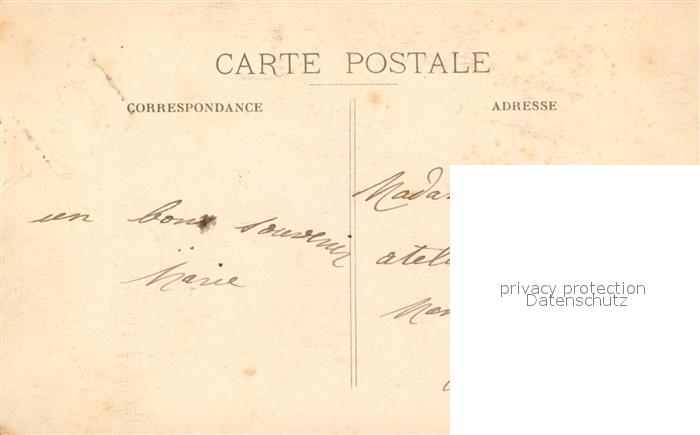 CARTE POSTALE
CORRESPONDANCE
ADRESSE
un bons souvenir
Marie
Mada
ateli
privacy protection
Datenschutz